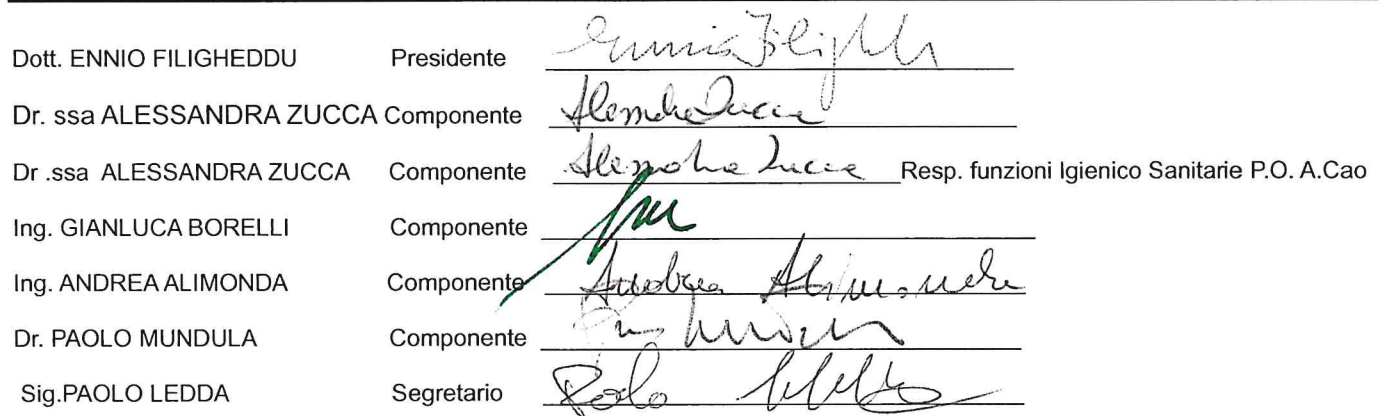 Dott. ENNIO FILIGHEDDU Presidente Ennio Filigh
Dr. ssa ALESSANDRA ZUCCA Componente Alessandra Zucca
Dr .ssa ALESSANDRA ZUCCA Componente Alessandra Zucca Resp. funzioni Igienico Sanitarie P.O. A.Cao
Ing. GIANLUCA BORELLI Componente
Ing. ANDREA ALIMONDA Componente Andrea Alimonda
Dr. PAOLO MUNDULA Componente
Sig.PAOLO LEDDA Segretario Paolo